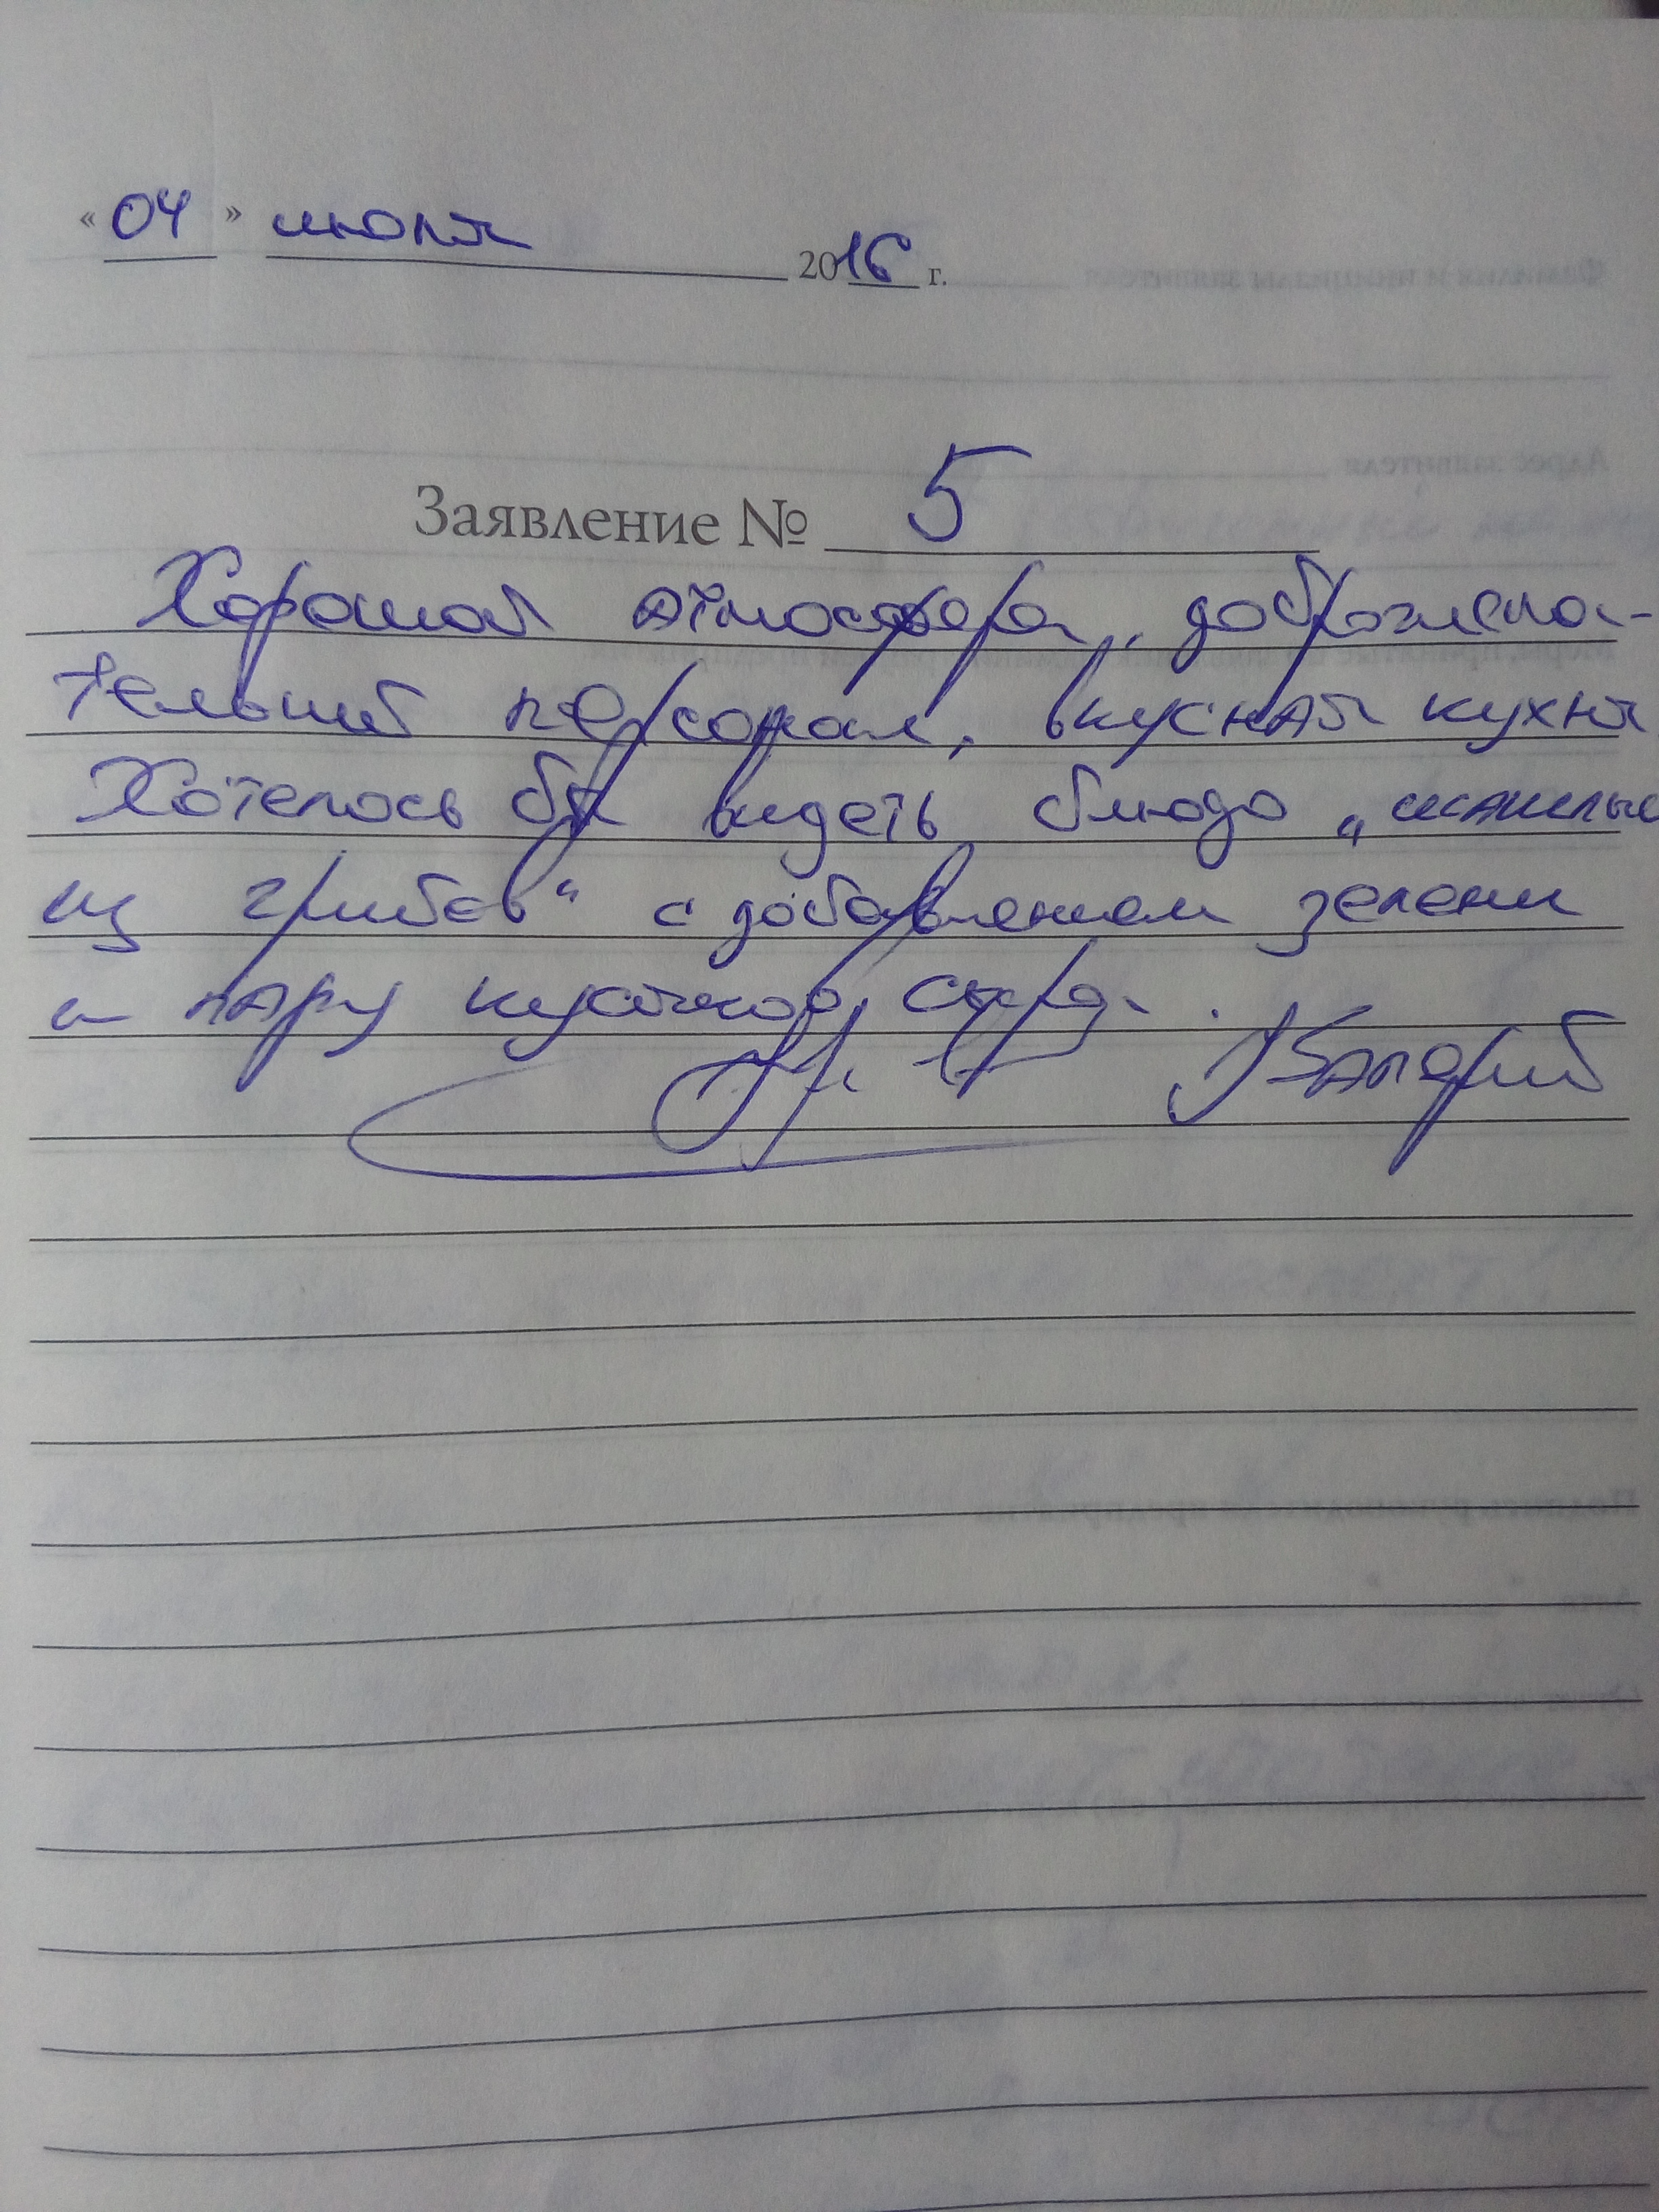 « 04 » июля 2016 г.
Заявление № 5
Хорошая атмосфера, доброжела-
тельный персонал, вкусная кухня
Хотелось бы видеть блюдо „шашлык
из грибов“ с добавлением зелени
и пару кусочков сыра.
Валерий